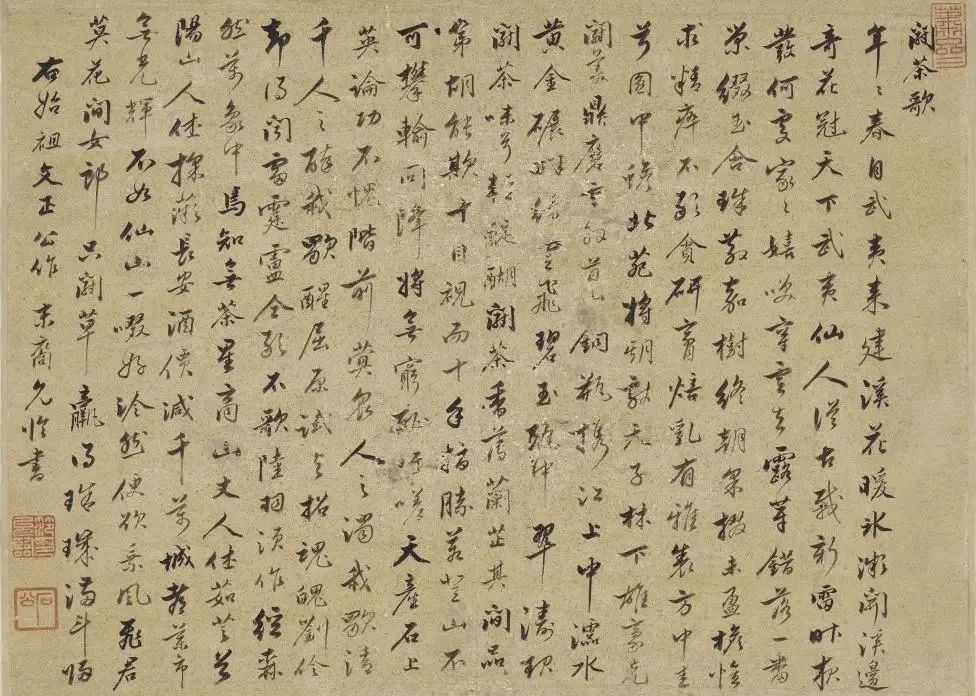 鬬茶歌
年〻春自武夷来建溪花暖冰澌開溪邊
奇花冠天下武夷仙人從古栽新雷昨夜
發何處家〻嬉笑穿雲去露芽錯落一番
榮綴玉含珠散嘉樹終朝采掇未盈襜惟
求精粹不敢貪研膏焙乳有雅製方中圭
兮圓中蟾北苑將期獻天子林下雄豪先
鬬美鼎磨雲外首山銅瓶攜江上中濡水
黄金碾畔緑雲飛碧玉甌中翠濤起
鬬茶味兮輕醍醐鬬茶香薄蘭芷其間品
第胡能欺十目視而十手指勝若登山不
可攀輸同降將無窮恥吁嗟天産石上
英論功不愧階前蓂衆人之濁我歌清
千人之醉我歌醒屈原試與招魂魄劉伶
却得聞雷霆盧仝敢不歌陸羽須作經森
然萬象中焉知無茶星商山丈人休茹芝首
陽山人休採薇長安酒價減千萬城都藥市
無光輝不如仙山一啜好泠然便欲乘風飛君
莫花間女郎只鬬草贏得珠璣滿斗歸
右始祖文正公作 末裔允臨書